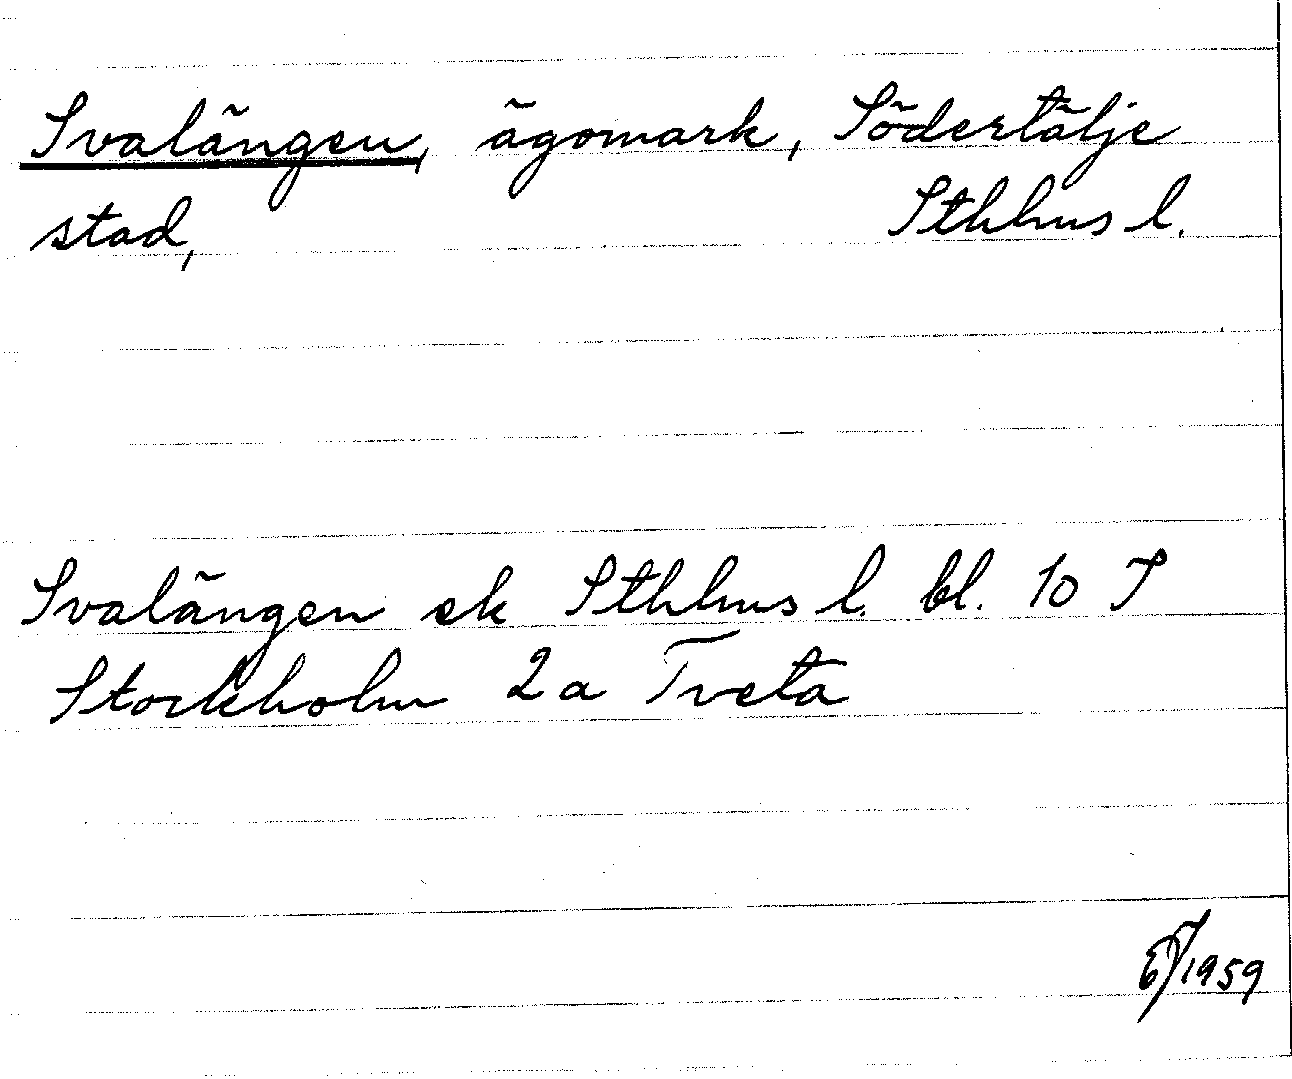 Svalängen, ägomark, Södertälje
stad, Sthlms l.
Svalängen ek Sthlms l. bl. 10 S
Stockholm 2a Tveta
1959